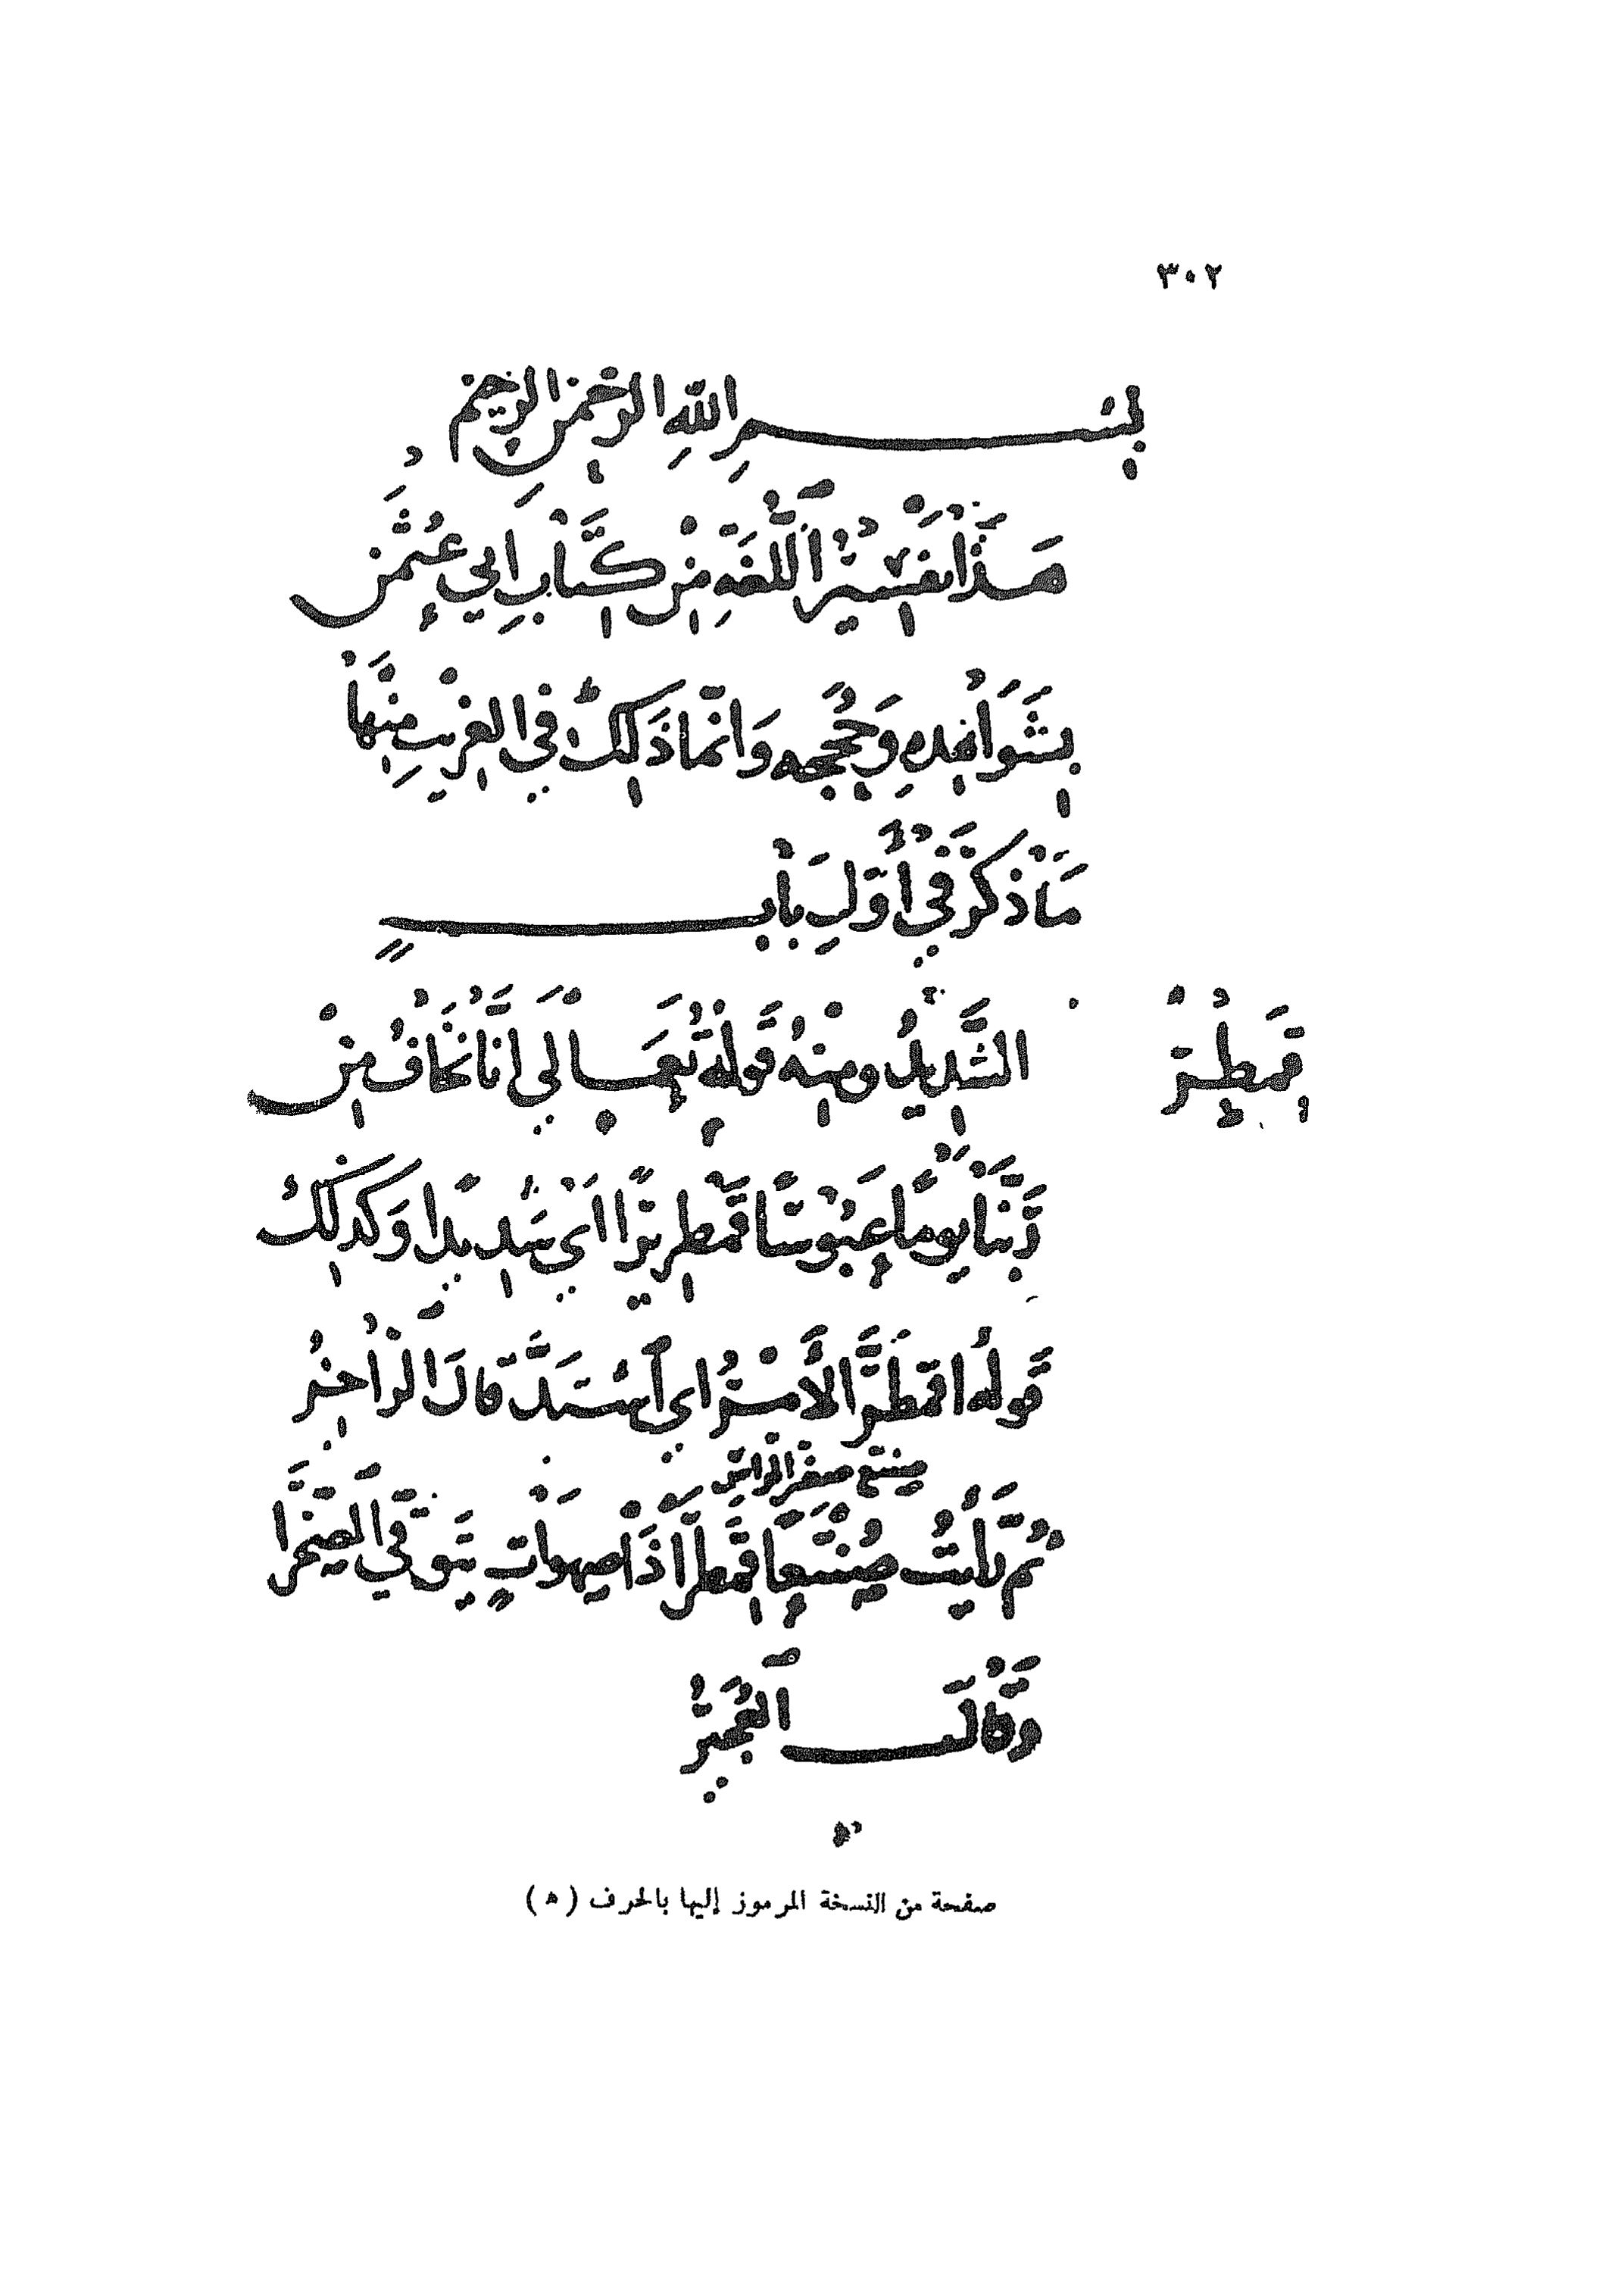 ٣٠٢
بِسْمِ اللهِ الرَّحْمٰنِ الرَّحِيمِ
هَذَا تَفْسِيرُ اللُّغَةِ مِنْ كِتَابِ أَبِي عُثْمٰنَ
بِشَوَاهِدِهِ وَحُجَجِهِ وَإِنَّمَا ذَلِكَ فِي الغَرِيبِ مِنْهَا
مَا ذَكَرَ فِي أَوَّلِ بَابٍ
قِمَطْرٌ الشَّدِيدُ وَمِنْهُ قَوْلُهُ تَعَالَى إِنَّا نَخَافُ مِنْ
رَبِّنَا يَوْمًا عَبُوسًا قَمْطَرِيرًا أَيْ شَدِيدًا وَكَذَلِكَ
قَوْلُهُ اقْمَطَرَّ الأَمْرُ أَيِ اشْتَدَّ قَالَ الرَّاجِزُ
صنتع صغير الراس
ثُمَّ رَأَيْتُ صُنْتُعًا قِمَطْرًا ذَا صَهَوَاتٍ فِي الصَّخْرَا
وَقَالَ العُجَيْرُ
صفحة من النسخة المرموز إليها بالحرف ( ه )